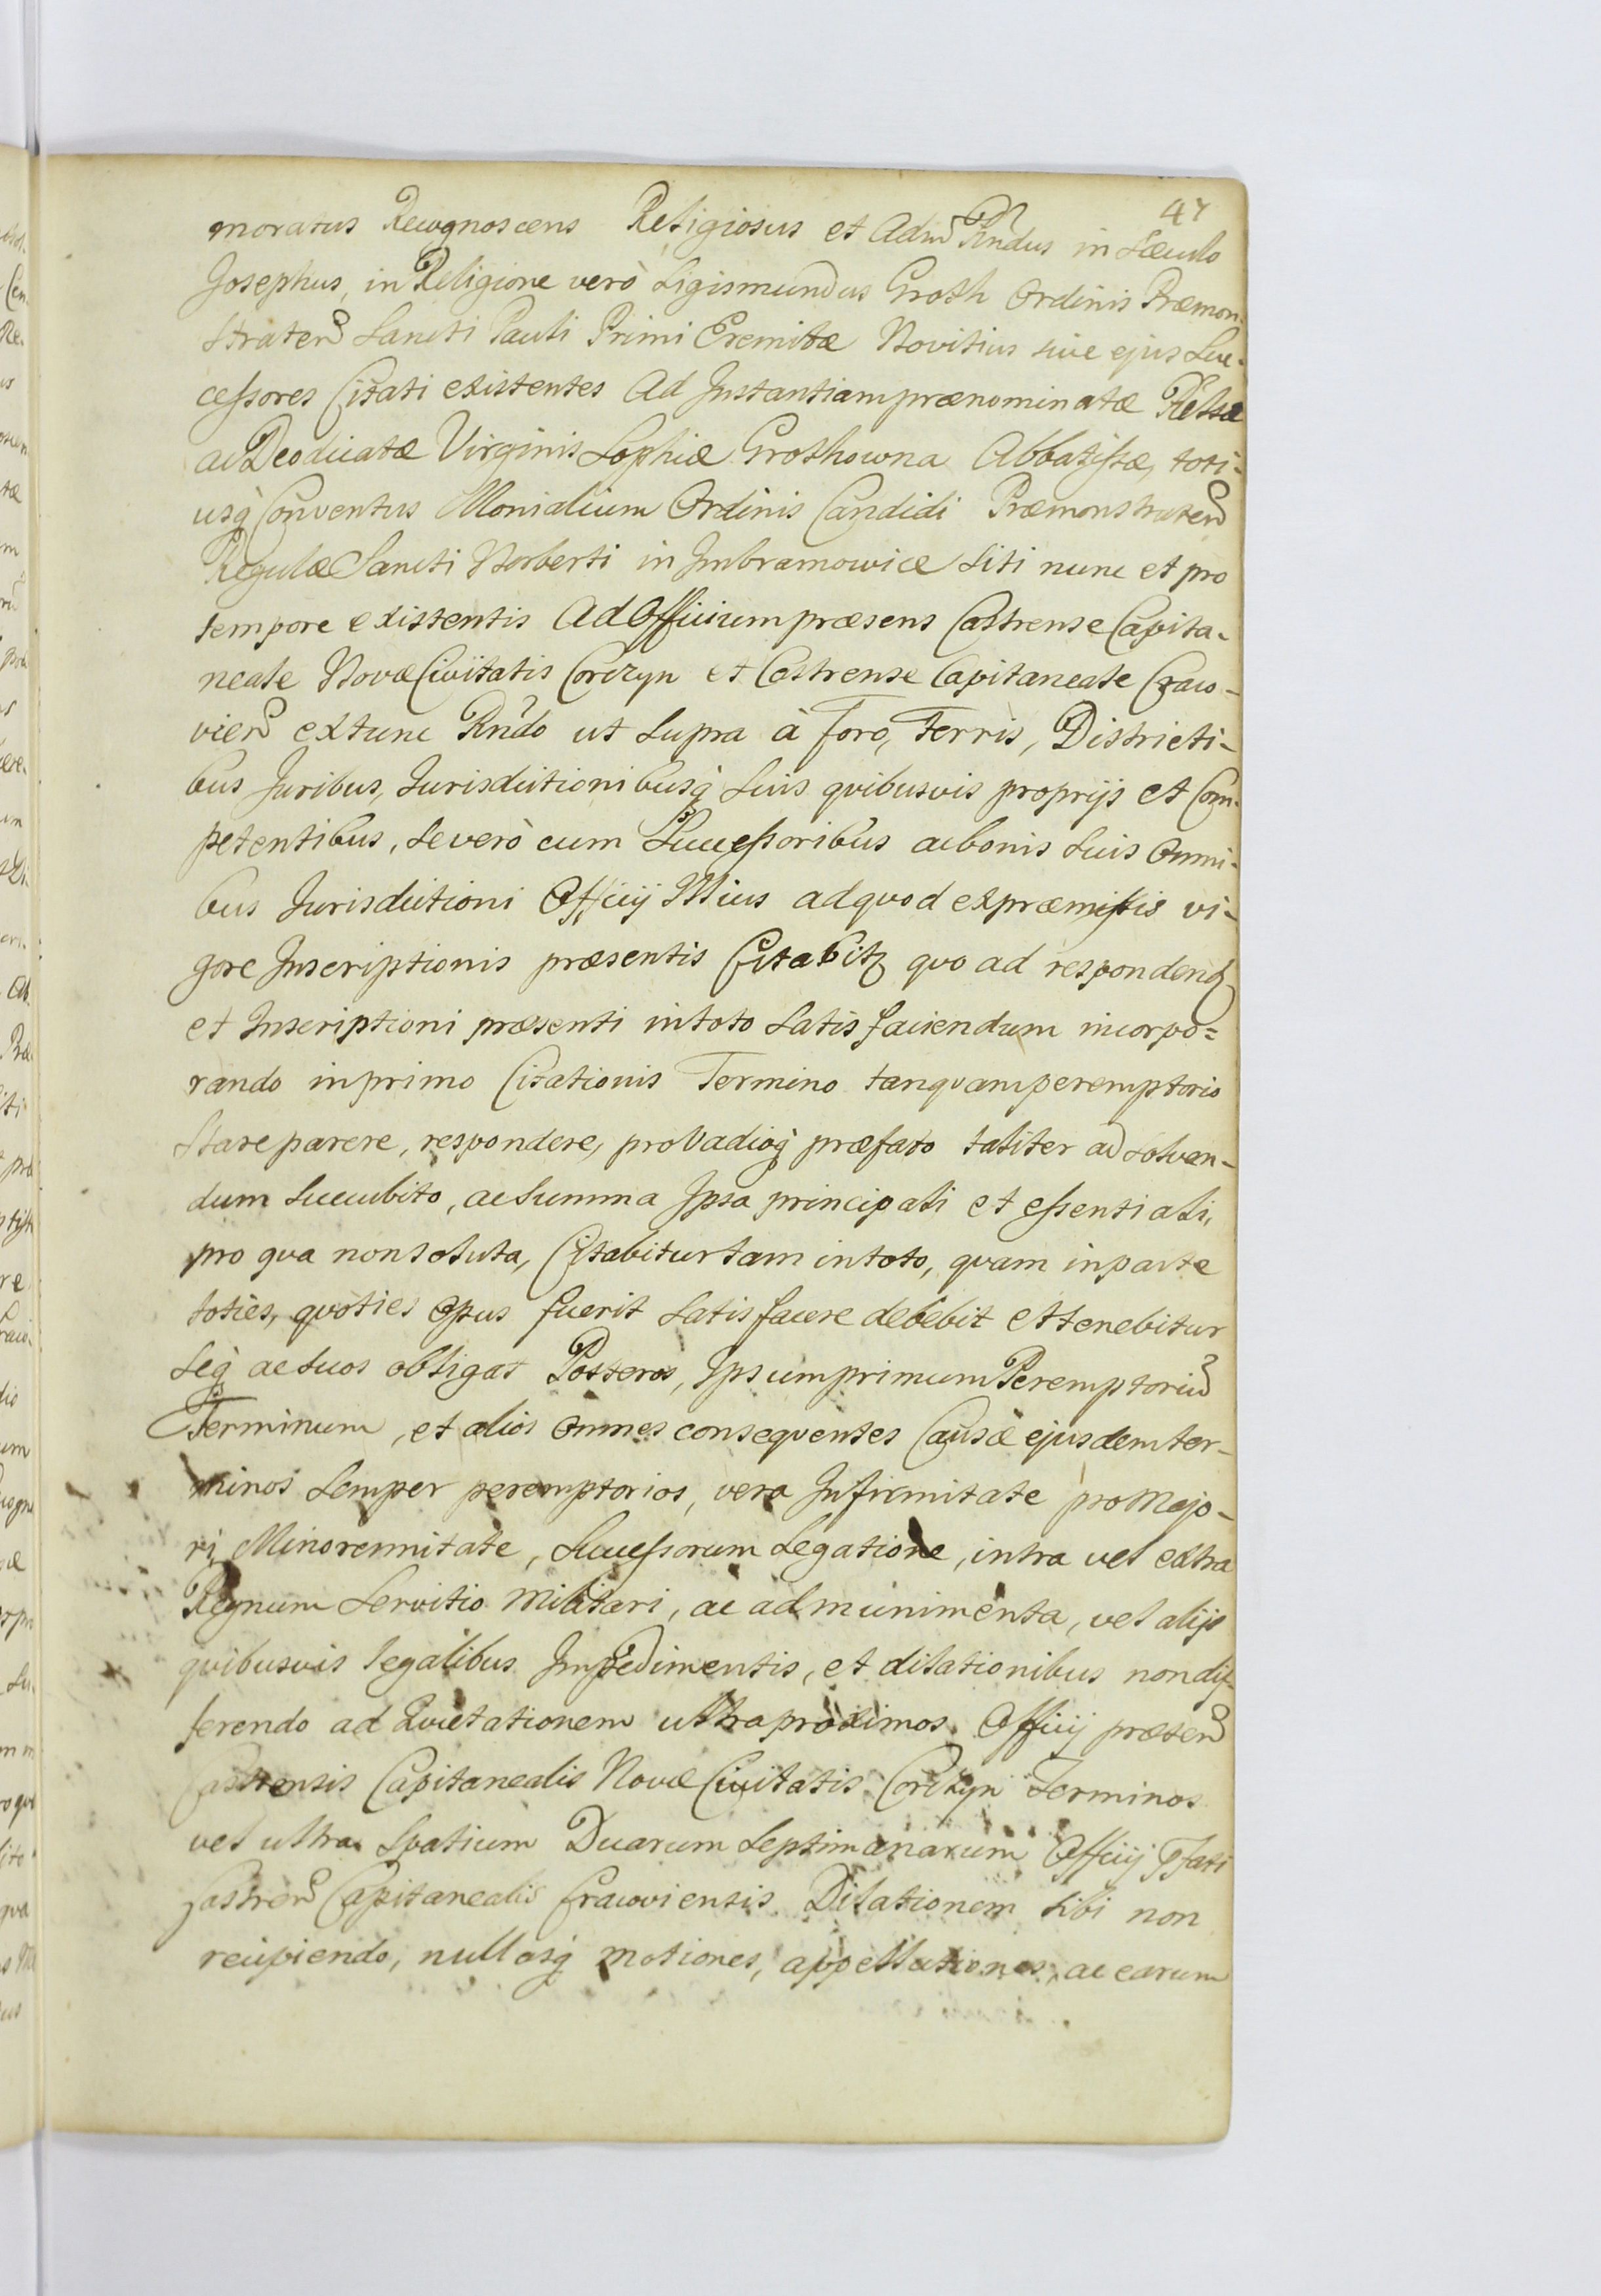 47
moratus Recognoscens Religiosus et Adm̃ Rñdus in Sæculo
Josephus, in Religione verò Sigismundus Groth Ordinis Præmon-
straten̄ Sancti Pauli Primi Eremitæ Novitius sive ejus Suc-
ceſsores Citati existentes Ad Instantiam prænominatæ Rel̃sæ
ac Deodicatæ Virginis Sophiæ Grothowna Abbatiſsæ, toti-
usq̀ Conventus Monialium Ordinis Candidi Præmonstraten̄
Regulæ Sancti Norberti in Imbramowice siti nunc et pro
tempore existentis Ad Officium præsens Castrense Capita-
neale Novæ Civitatis Corczyn et Castrense Capitaneale Craco-
vien̄ extunc Rñdo ut supra à Foro, Terris, Districti-
bus Juribus, Jurisdictionibusq̀ suis qvibusvis proprijs et Com-
petentibus, se verò cum Succeſsoribus ac bonis suis Omni-
bus Jurisdictioni Officij Illius ad qvod ex præmiſsis vi-
gore Inscriptionis præsentis Citabitz qvo ad respondendz
et Inscriptioni præsenti in toto satisfaciendum incorpo=
rando in primo Citationis Termino tanqvam peremptorio
Stare parere, respondere, pro Vadioq̀ præfato taliter ad solven-
dum succubito, ac Summa Ipsa principali et eſsentiali,
pro qva non soluta, Citabitur tam in toto, qvam in parte
toties, qvoties Opus fuerit satisfacere debebit et tenebitur
seq̀ ac suos obligat Posteros, Ipsum primum Peremptoriū
Terminum, et alios Omnes conseqventes Causæ ejusdem ter-
minos semper peremptorios, vera Infirmitate pro Majo-
ri, Minorennitate, Succeſsorum Legatione, intra vel extra
Regnum Servitio Militari, ac ad munimenta, vel alijs
qvibusvis legalibus Impedimentis, et dilationibus non dif-
ferendo ad Qvietationem ultra proximos Officij præsen̄
Castrensis Capitanealis Novæ Civitatis Corczyn Terminos
vel ultra Spatium Duarum Septimanarum Officij Pfati
Castren̄ Capitanealis Cracoviensis Dilationem sibi non
recipiendo, nullasq̀ motiones, appellationes, ac earum